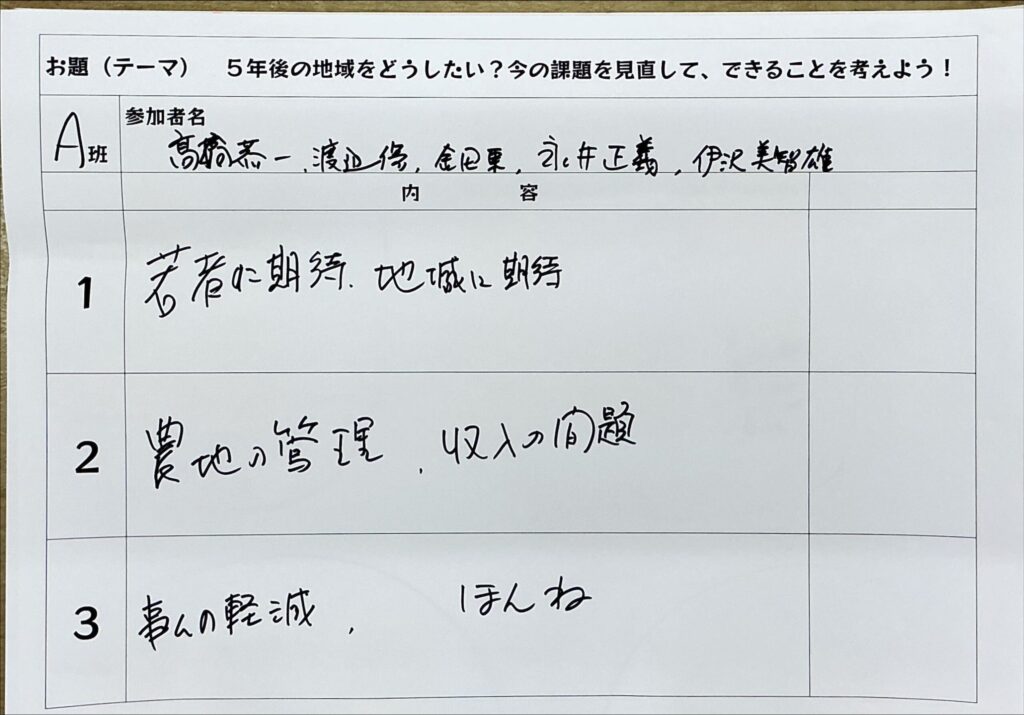 お題(テーマ) 5年後の地域をどうしたい?今の課題を見直して、できることを考えよう!
A班
参加者名
高橋恭一、渡辺保、金田栗、永井正義、伊沢美智雄
内 容
1
若者に期待、地域に期待
2
農地の管理、収入の問題
3
の軽減、 ほんね